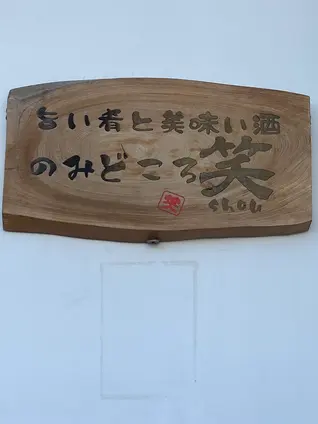 旨い肴と美味い酒
のみどころ笑
shou
笑